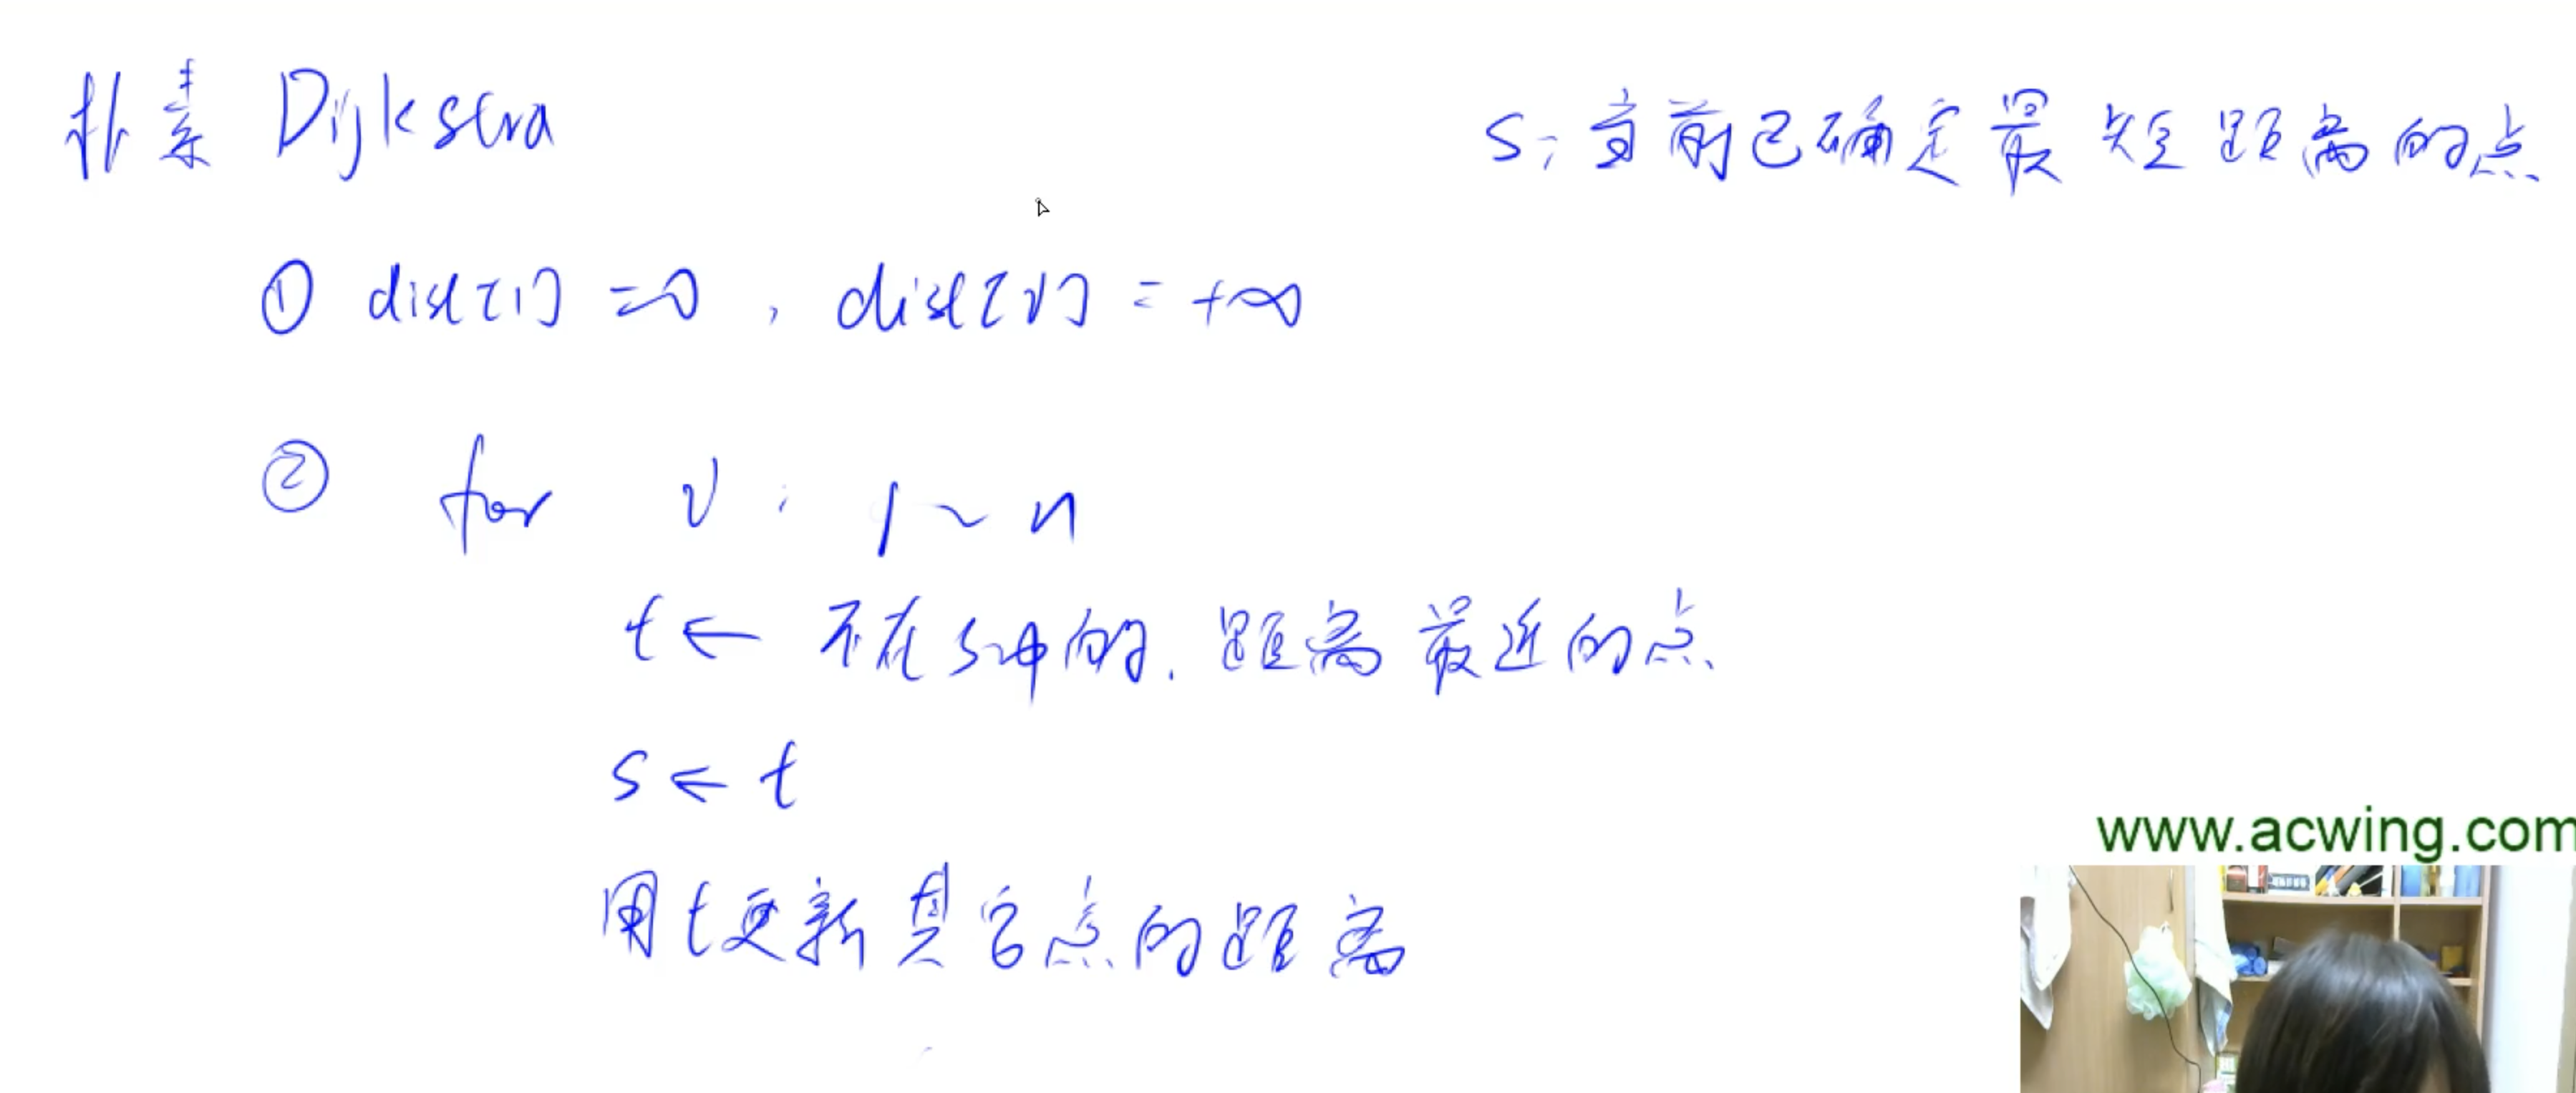 朴素 Dijkstra
S: 当前已确定最短距离的点
① dist[1] = 0, dist[v] = +∞
② for v: 1 ~ n
t ← 不在S中的, 距离最近的点
s ← t
用t更新其它点的距离
www.acwing.com